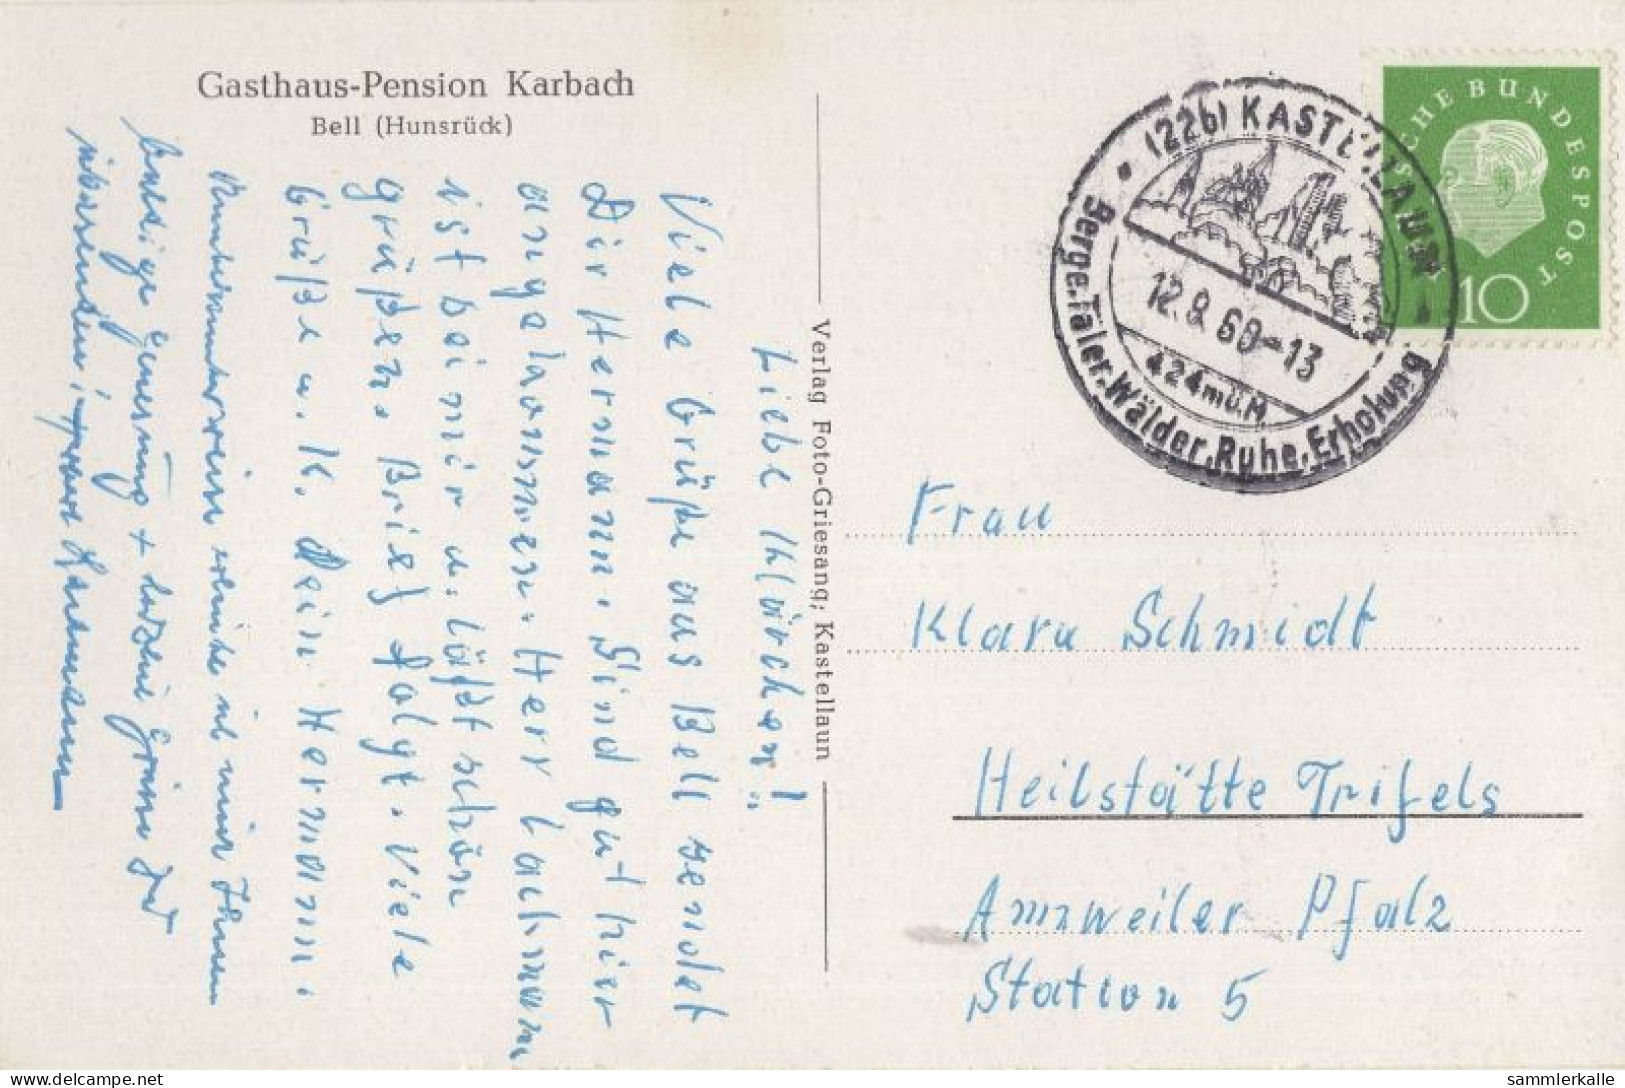 Gasthaus-Pension Karbach
Bell (Hunsrück)
Liebe Klärchen!
Viele Grüße aus Bell sendet
Dir Hermann. Sind gut hier
angekommen. Herr Lachmann
ist bei mir u. läßt schön
grüßen. Brief folgt. Viele
Grüße u. K. Dein Hermann.
Unbekannterweise wünsche ich Ihnen
baldige Genesung +
Verlag Foto-Griesang, Kastellaun
(22b) KASTELLAUN
12.8.60-13
424m ü.M.
Berge.Täler.Wälder.Ruhe.Erholung
DEUTSCHE BUNDESPOST
10
Frau
Klara Schmidt
Heilstätte Trifels
Annweiler Pfalz
Station 5
delcampe.net
sammlerkalle